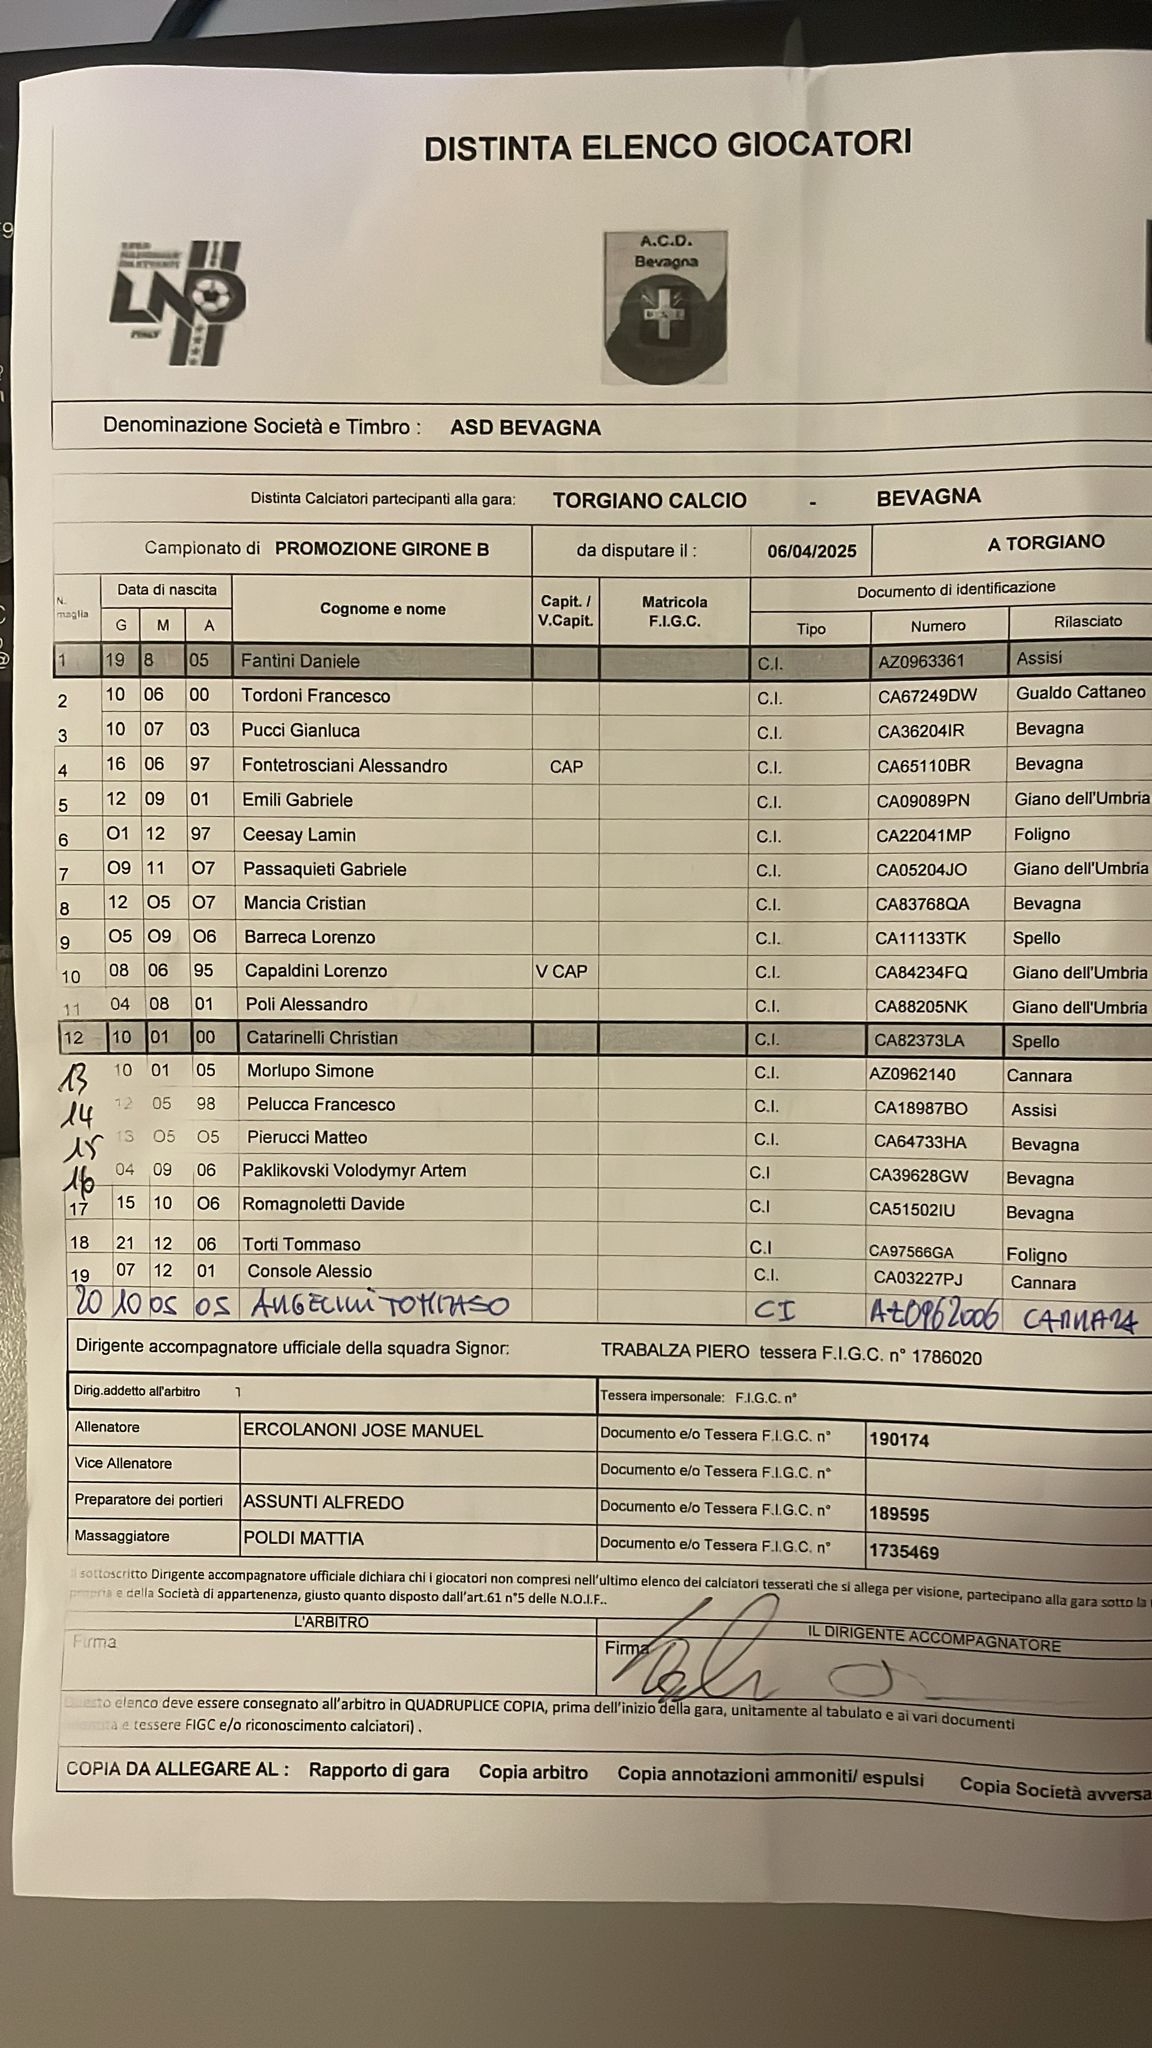 DISTINTA ELENCO GIOCATORI
LND
ITALY
A.C.D.
Bevagna
Denominazione Società e Timbro : ASD BEVAGNA
Distinta Calciatori partecipanti alla gara: TORGIANO CALCIO - BEVAGNA
Campionato di PROMOZIONE GIRONE B da disputare il : 06/04/2025 A TORGIANO
N. maglia Data di nascita Cognome e nome Capit. / V.Capit. Matricola F.I.G.C. Documento di identificazione
G M A Tipo Numero Rilasciato
1 19 8 05 Fantini Daniele C.I. AZ0963361 Assisi
2 10 06 00 Tordoni Francesco C.I. CA67249DW Gualdo Cattaneo
3 10 07 03 Pucci Gianluca C.I. CA36204IR Bevagna
4 16 06 97 Fontetrosciani Alessandro CAP C.I. CA65110BR Bevagna
5 12 09 01 Emili Gabriele C.I. CA09089PN Giano dell'Umbria
6 O1 12 97 Ceesay Lamin C.I. CA22041MP Foligno
7 O9 11 O7 Passaquieti Gabriele C.I. CA05204JO Giano dell'Umbria
8 12 O5 O7 Mancia Cristian C.I. CA83768QA Bevagna
9 O5 O9 O6 Barreca Lorenzo C.I. CA11133TK Spello
10 08 06 95 Capaldini Lorenzo V CAP C.I. CA84234FQ Giano dell'Umbria
11 04 08 01 Poli Alessandro C.I. CA88205NK Giano dell'Umbria
12 10 01 00 Catarinelli Christian C.I. CA82373LA Spello
13 10 01 05 Morlupo Simone C.I. AZ0962140 Cannara
14 12 05 98 Pelucca Francesco C.I. CA18987BO Assisi
15 13 O5 O5 Pierucci Matteo C.I. CA64733HA Bevagna
16 04 09 06 Paklikovski Volodymyr Artem C.I CA39628GW Bevagna
17 15 10 O6 Romagnoletti Davide C.I CA51502IU Bevagna
18 21 12 06 Torti Tommaso C.I CA97566GA Foligno
19 07 12 01 Console Alessio C.I. CA03227PJ Cannara
20 10 05 05 ANGELINI TOMMASO CI AZ0962006 CANNARA
Dirigente accompagnatore ufficiale della squadra Signor: TRABALZA PIERO tessera F.I.G.C. n° 1786020
Dirig.addetto all'arbitro Tessera impersonale: F.I.G.C. n°
Allenatore ERCOLANONI JOSE MANUEL Documento e/o Tessera F.I.G.C. n° 190174
Vice Allenatore Documento e/o Tessera F.I.G.C. n°
Preparatore dei portieri ASSUNTI ALFREDO Documento e/o Tessera F.I.G.C. n° 189595
Massaggiatore POLDI MATTIA Documento e/o Tessera F.I.G.C. n° 1735469
Il sottoscritto Dirigente accompagnatore ufficiale dichiara chi i giocatori non compresi nell'ultimo elenco dei calciatori tesserati che si allega per visione, partecipano alla gara sotto la
propria e della Società di appartenenza, giusto quanto disposto dall'art.61 n°5 delle N.O.I.F..
L'ARBITRO IL DIRIGENTE ACCOMPAGNATORE
Firma Firma
Questo elenco deve essere consegnato all'arbitro in QUADRUPLICE COPIA, prima dell'inizio della gara, unitamente al tabulato e ai vari documenti
e tessere FIGC e/o riconoscimento calciatori) .
COPIA DA ALLEGARE AL : Rapporto di gara Copia arbitro Copia annotazioni ammoniti/ espulsi Copia Società avversa